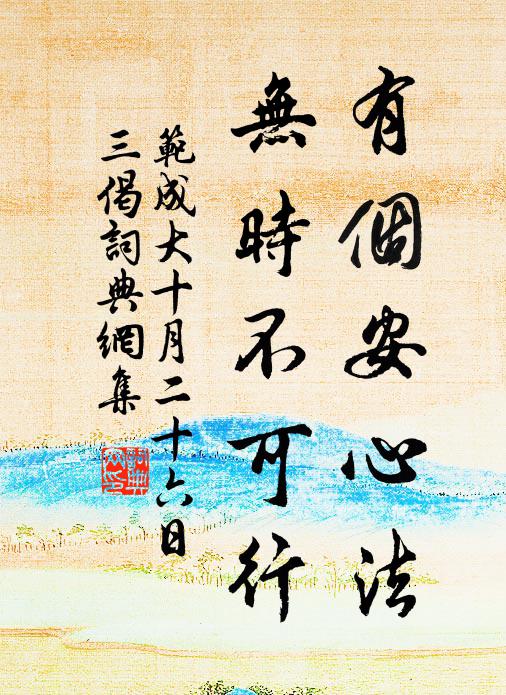 有個安心法
無時不可行
範成大十月二十六日
三偈詞典網集